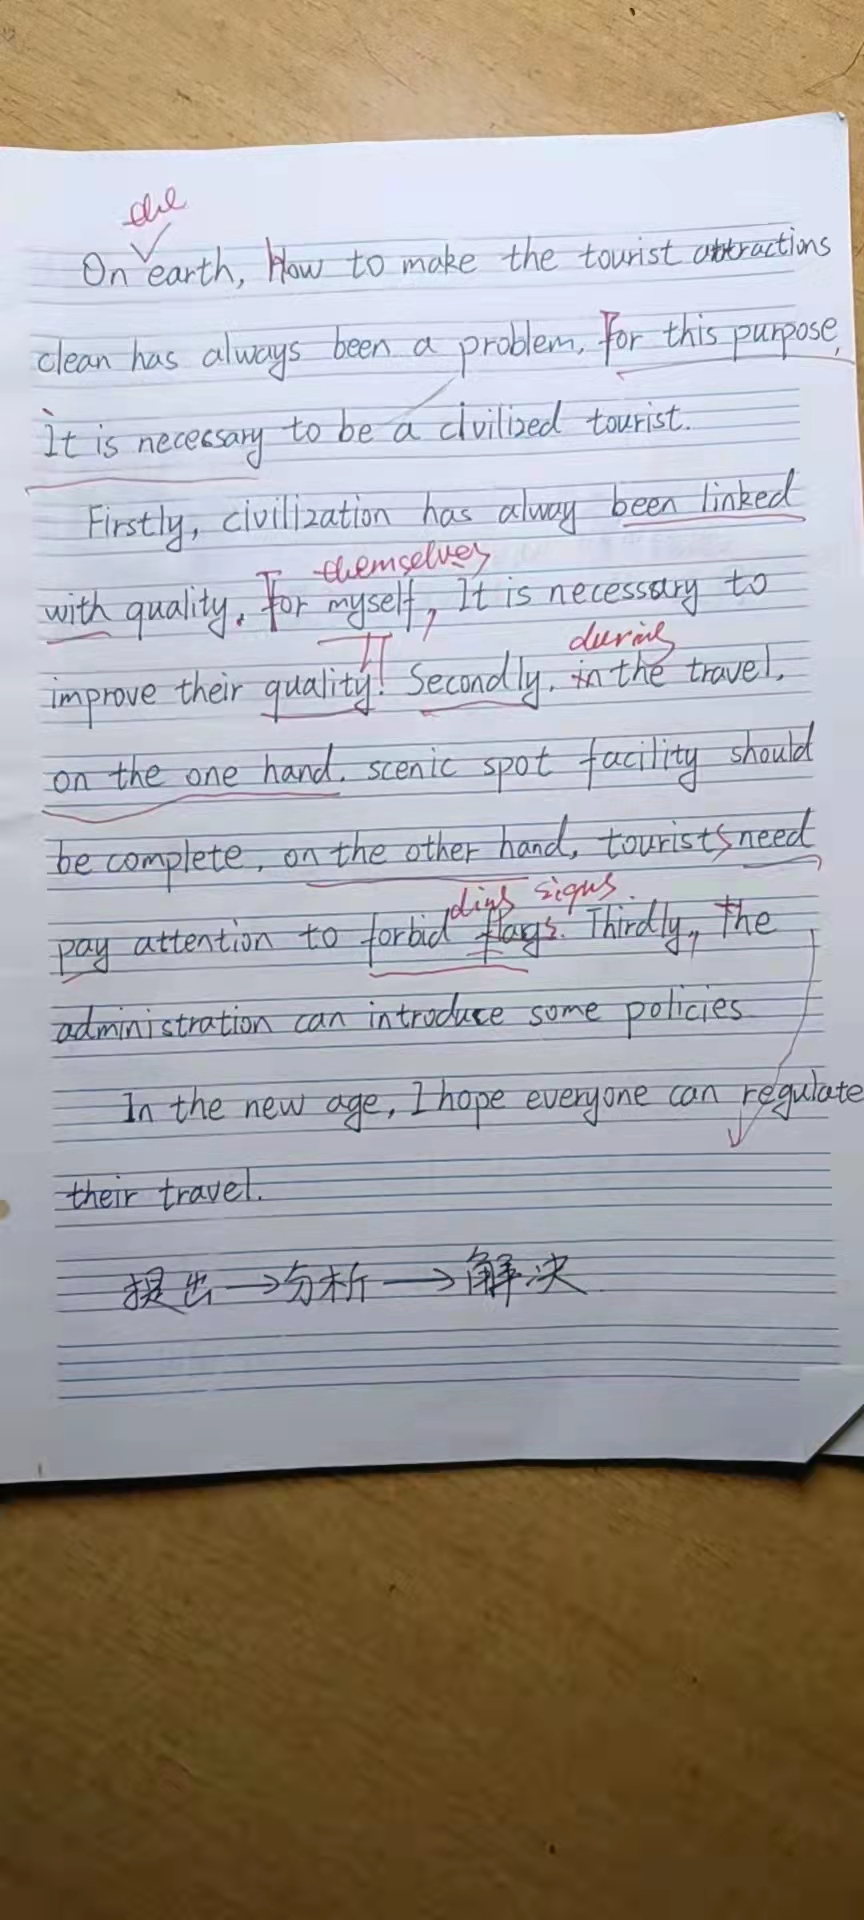 the
On earth, How to make the tourist attractions
clean has always been a problem. For this purpose,
It is necessary to be a civilized tourist.
Firstly, civilization has alway been linked
themselves
with quality. For myself, It is necessary to
during
improve their quality. Secondly, in the travel,
on the one hand, scenic spot facility should
be complete, on the other hand, tourists need
ding signs
pay attention to forbid flags. Thirdly, The
administration can introduce some policies
In the new age, I hope everyone can regulate
their travel.
提出→分析→解决